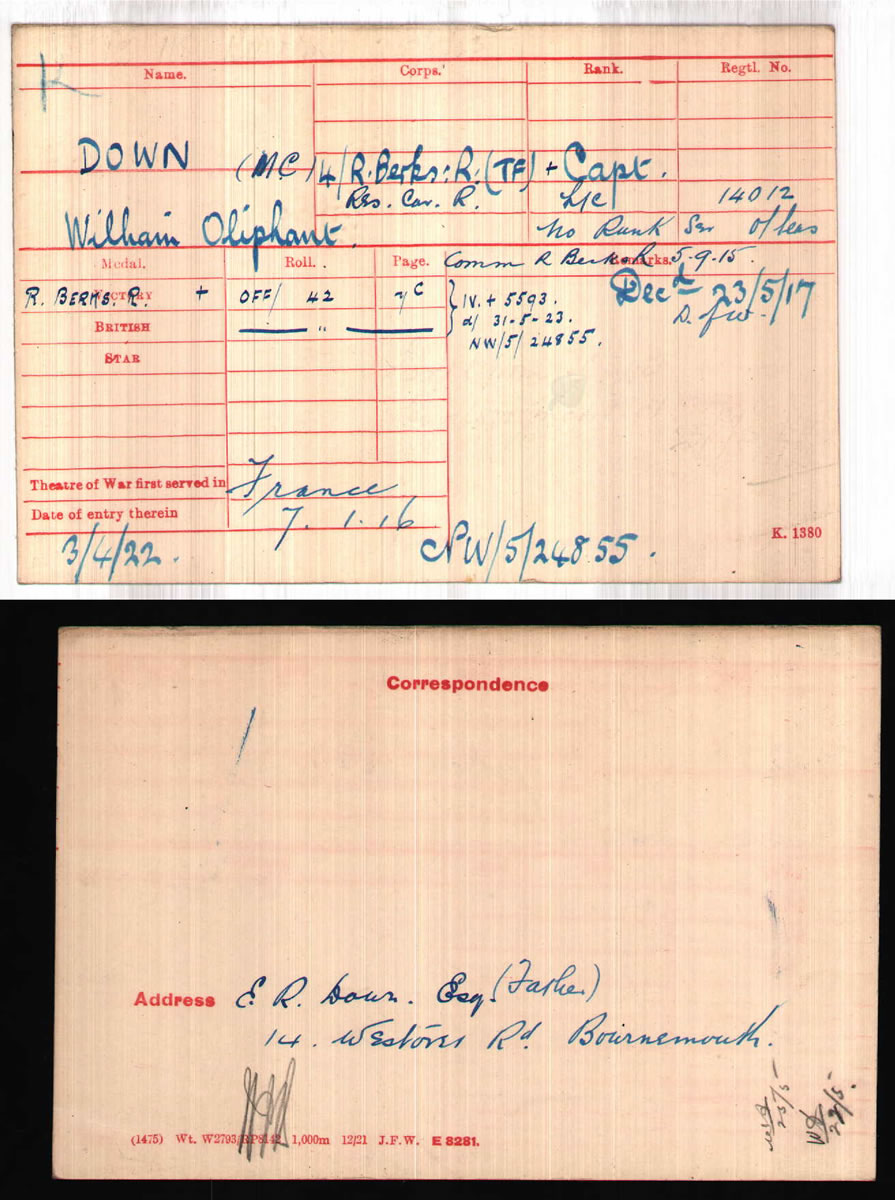 Name. Corps. Rank. Regtl. No.
DOWN (M.C) 4/R. Berks: R. (TF) + Capt.
Res. Cav. R. L/C 14012
William Oliphant. No Rank Ser Offcers
Medal. Roll. Page. Remarks.
Comm R Berks R 5-9-15.
VICTORY R. BERKS. R. + OFF/ 42 7C IV. + 5593. Decd 23/5/17
BRITISH " d/ 31-5-23. D. of W.
NW/5/24855.
STAR
Theatre of War first served in France
Date of entry therein 7.1.16
K. 1380
3/4/22. NW/5/24855.
Correspondence
Address E. R. Down. Esq. (Father)
14. Westover Rd. Bournemouth.
(1475) Wt. W2793/RP8142 1,000m 12/21 J.F.W. E 8281.